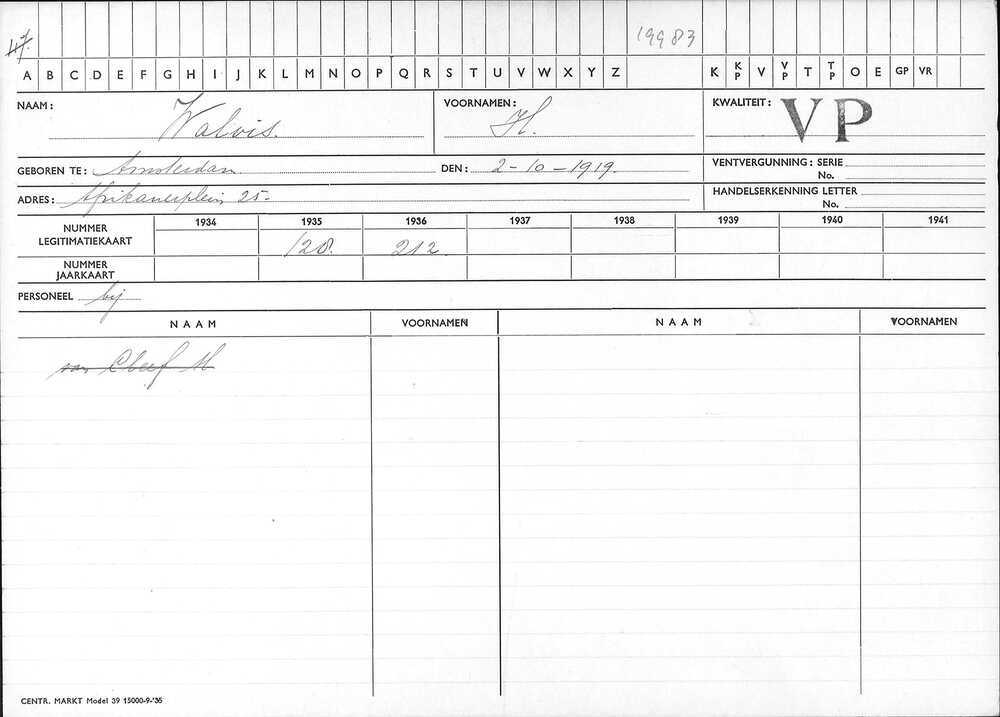 47. 19983
A B C D E F G H I J K L M N O P Q R S T U V W X Y Z K KP V VP T TP O E GP VR
NAAM: Walvis. VOORNAMEN: H. KWALITEIT: VP
GEBOREN TE: Amsterdam DEN: 2-10-1919. VENTVERGUNNING: SERIE
No.
ADRES: Afrikanerplein 25- HANDELSERKENNING LETTER
No.
1934 1935 1936 1937 1938 1939 1940 1941
NUMMER LEGITIMATIEKAART 128. 212.
NUMMER JAARKAART
PERSONEEL bij
NAAM VOORNAMEN NAAM VOORNAMEN
van Cleef M
CENTR. MARKT Model 39 15000-9-'35